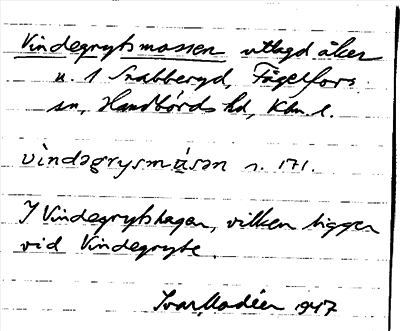 Vindegrytsmossen utlagd åker
u. 1 Snabberyd, Fågelfors
sn, Handbörds hd, Klm. l.
vìndəgrysmɷ̀sən s. 171.
I Vindegrytshagen, vilken ligger
vid Vindegryte.
Ivar Modéer 1947